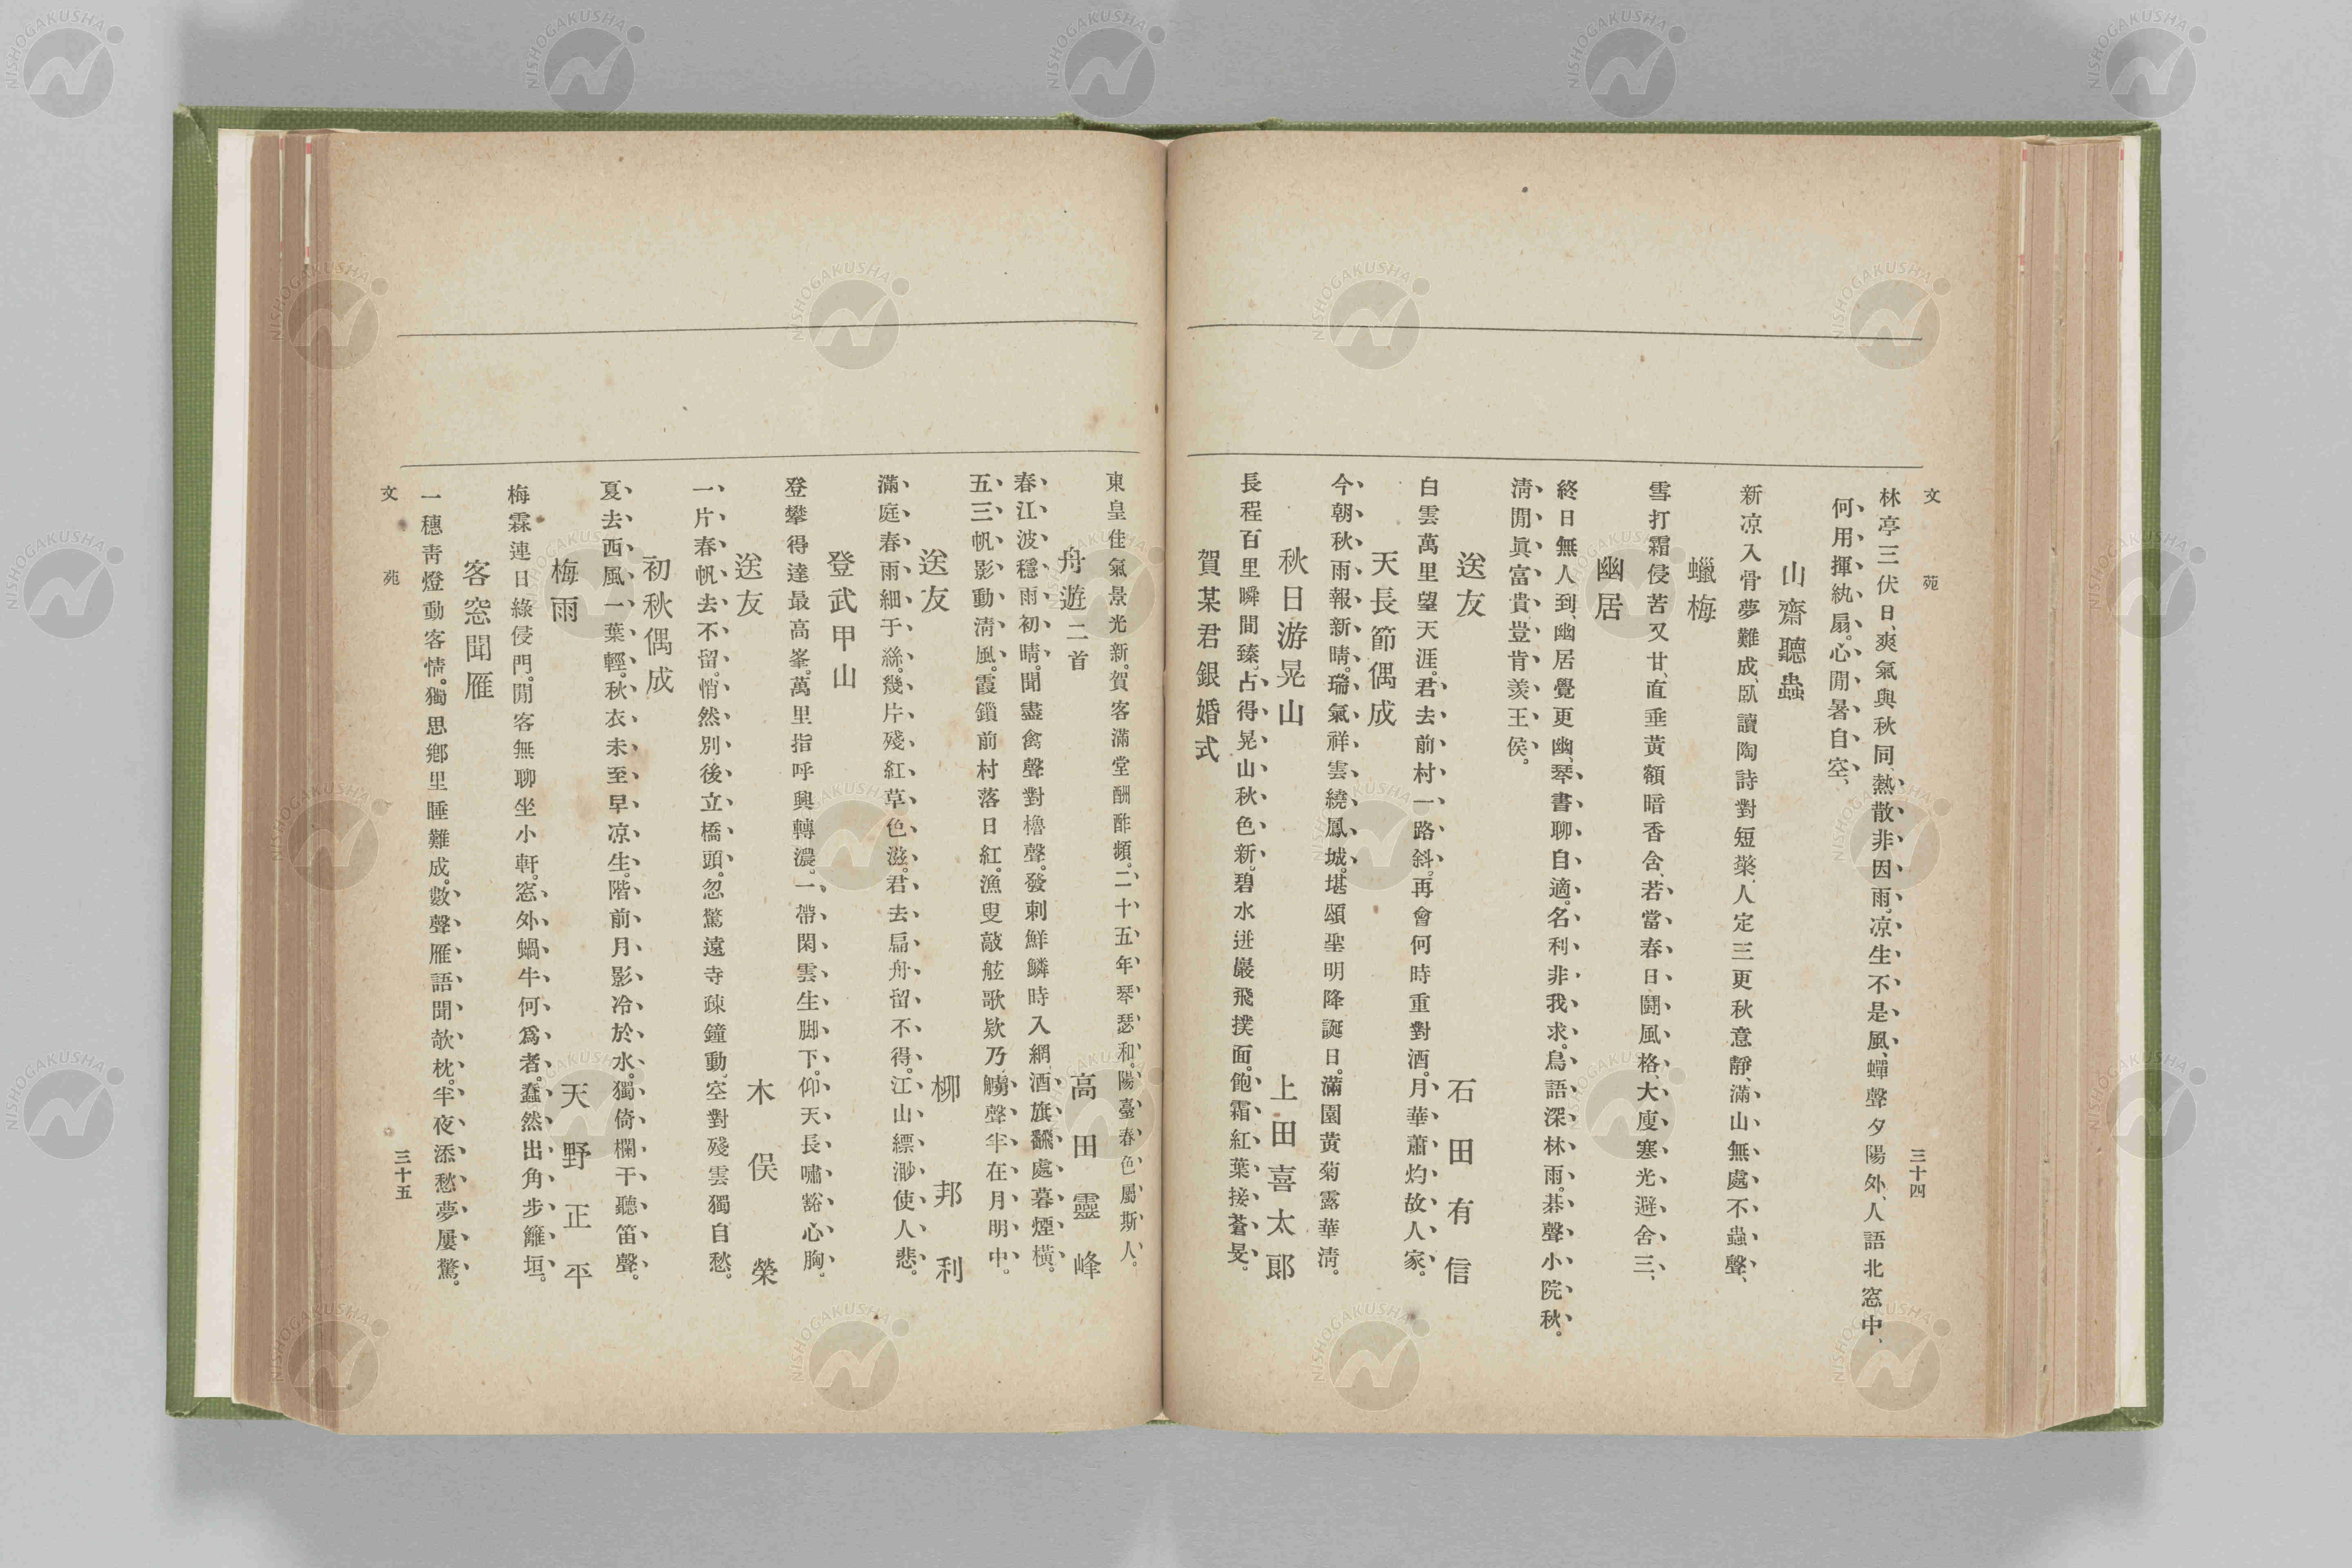 文苑
三十四
林亭三伏日、爽氣與秋同、熱散非因雨。凉生不是風、蟬聲夕陽外、人語北窓中、
何用揮紈扇。心閒暑自空、
山齋聽蟲
新凉入骨夢難成、臥讀陶詩對短檠、人定三更秋意靜、滿山無處不蟲聲、
蠟梅
雪打霜侵苦又甘、直垂黃額暗香含、若當春日鬪風格、大廋寒光避舍三、
幽居
終日無人到、幽居覺更幽、琴書聊自適。名利非我求。鳥語深林雨。碁聲小院秋。
淸閒眞富貴、豈肯羨王侯。
送友 石田有信
白雲萬里望天涯。君去前村一路斜。再會何時重對酒。月華蕭灼故人家。
天長節偶成
今朝秋雨報新晴。瑞氣祥雲繞鳳城。堪頌聖明降誕日。滿園黃菊露華淸。
秋日游晃山 上田喜太郞
長程百里瞬間臻、占得晃山秋色新。碧水迸巖飛撲面。飽霜紅葉接蒼旻。
賀某君銀婚式
東皇佳氣景光新。賀客滿堂酬酢頻。二十五年琴瑟和。陽臺春色屬斯人。
舟遊二首 高田靈峰
春江波穩雨初晴。聞盡禽聲對櫓聲。發刺鮮鱗時入網、酒旗飜處暮煙橫。
五三帆影動淸風。霞鎖前村落日紅。漁叟敲舷歌欵乃、觴聲半在月明中。
送友 柳邦利
滿庭春雨細于絲。幾片殘紅草色滋。君去扁舟留不得。江山縹渺使人悲。
登武甲山
登攀得達最高峯。萬里指呼興轉濃。一帶閑雲生脚下。仰天長嘯豁心胸。
送友 木俣榮
一片春帆去不留。悄然別後立橋頭。忽驚遠寺疎鐘動、空對殘雲獨自愁。
初秋偶成
夏去西風一葉輕。秋衣未至早凉生。階前月影冷於水。獨倚欄干聽笛聲。
梅雨 天野正平
梅霖連日綠侵門。閒客無聊坐小軒。窓外蝸牛何爲者。蠢然出角步籬垣。
客窓聞雁
一穗靑燈動客情。獨思鄕里睡難成。數聲雁語聞欹枕。半夜添愁夢屢驚。
文苑
三十五
NISHOGAKUSHA